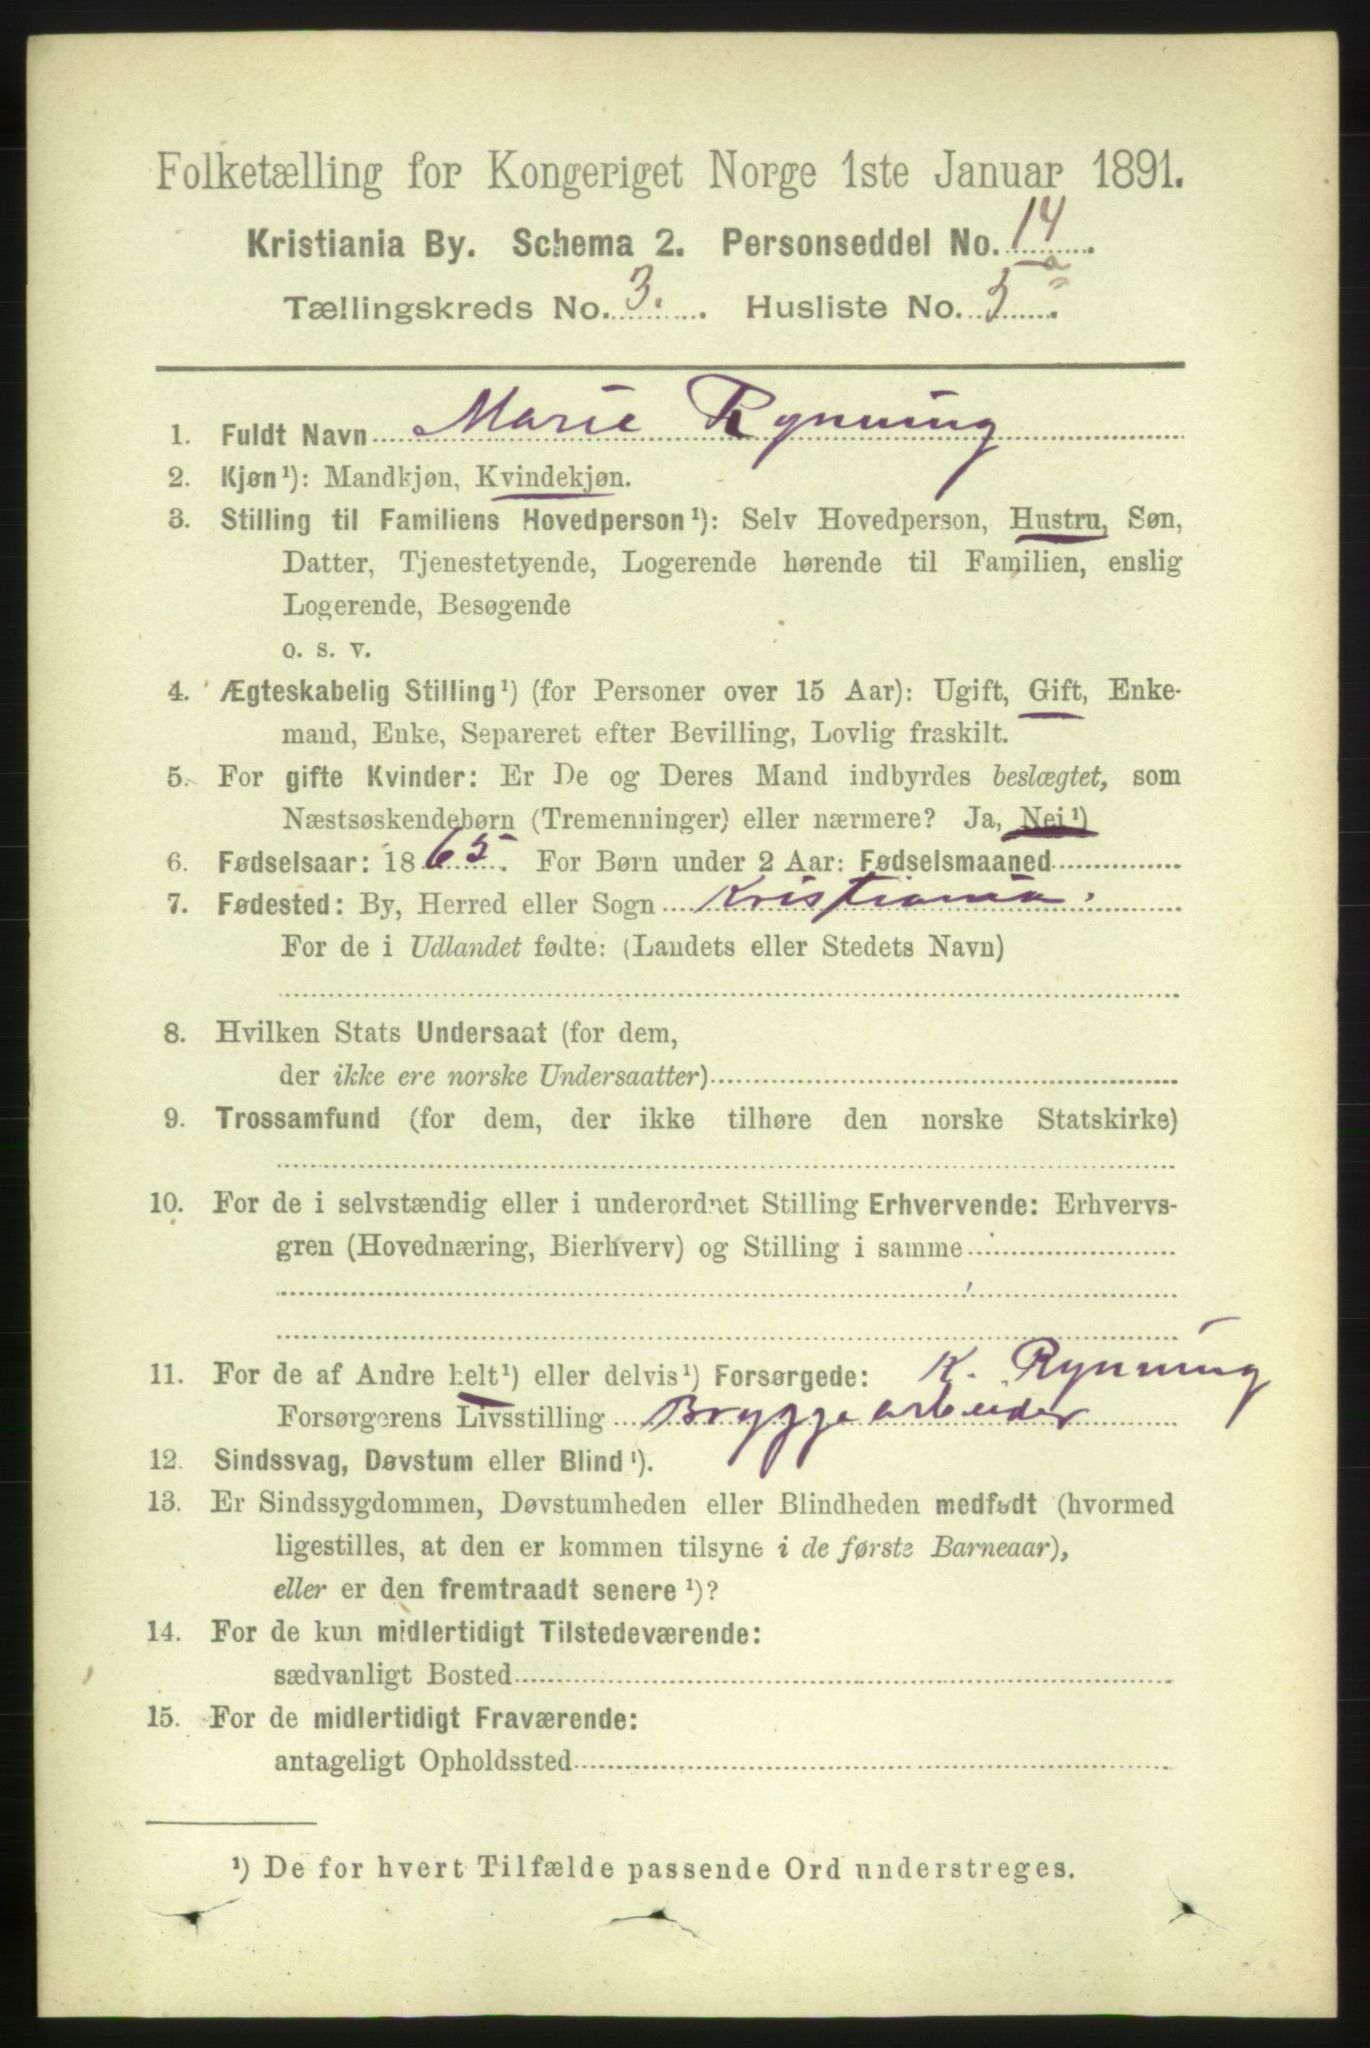 Folketælling for Kongeriget Norge 1ste Januar 1891.
Kristiania By. Schema 2. Personseddel No. 14.
Tællingskreds No. 3. Husliste No. 5a.
1. Fuldt Navn Marie Rynning
2. Kjøn¹): Mandkjøn, Kvindekjøn.
3. Stilling til Familiens Hovedperson¹): Selv Hovedperson, Hustru, Søn,
Datter, Tjenestetyende, Logerende hørende til Familien, enslig
Logerende, Besøgende
o. s. v.
4. Ægteskabelig Stilling¹) (for Personer over 15 Aar): Ugift, Gift, Enke-
mand, Enke, Separeret efter Bevilling, Lovlig fraskilt.
5. For gifte Kvinder: Er De og Deres Mand indbyrdes beslægtet, som
Næstsøskendebørn (Tremenninger) eller nærmere? Ja, Nei¹)
6. Fødselsaar: 1865. For Børn under 2 Aar: Fødselsmaaned
7. Fødested: By, Herred eller Sogn Kristiania.
For de i Udlandet fødte: (Landets eller Stedets Navn)
8. Hvilken Stats Undersaat (for dem,
der ikke ere norske Undersaatter)
9. Trossamfund (for dem, der ikke tilhøre den norske Statskirke)
10. For de i selvstændig eller i underordnet Stilling Erhvervende: Erhvervs-
gren (Hovednæring, Bierhverv) og Stilling i samme
11. For de af Andre helt¹) eller delvis¹) Forsørgede: K. Rynning
Forsørgerens Livsstilling Bryggearbeider
12. Sindssvag, Døvstum eller Blind¹).
13. Er Sindssygdommen, Døvstumheden eller Blindheden medfødt (hvormed
ligestilles, at den er kommen tilsyne i de første Barneaar),
eller er den fremtraadt senere¹)?
14. For de kun midlertidigt Tilstedeværende:
sædvanligt Bosted
15. For de midlertidigt Fraværende:
antageligt Opholdssted
¹) De for hvert Tilfælde passende Ord understreges.